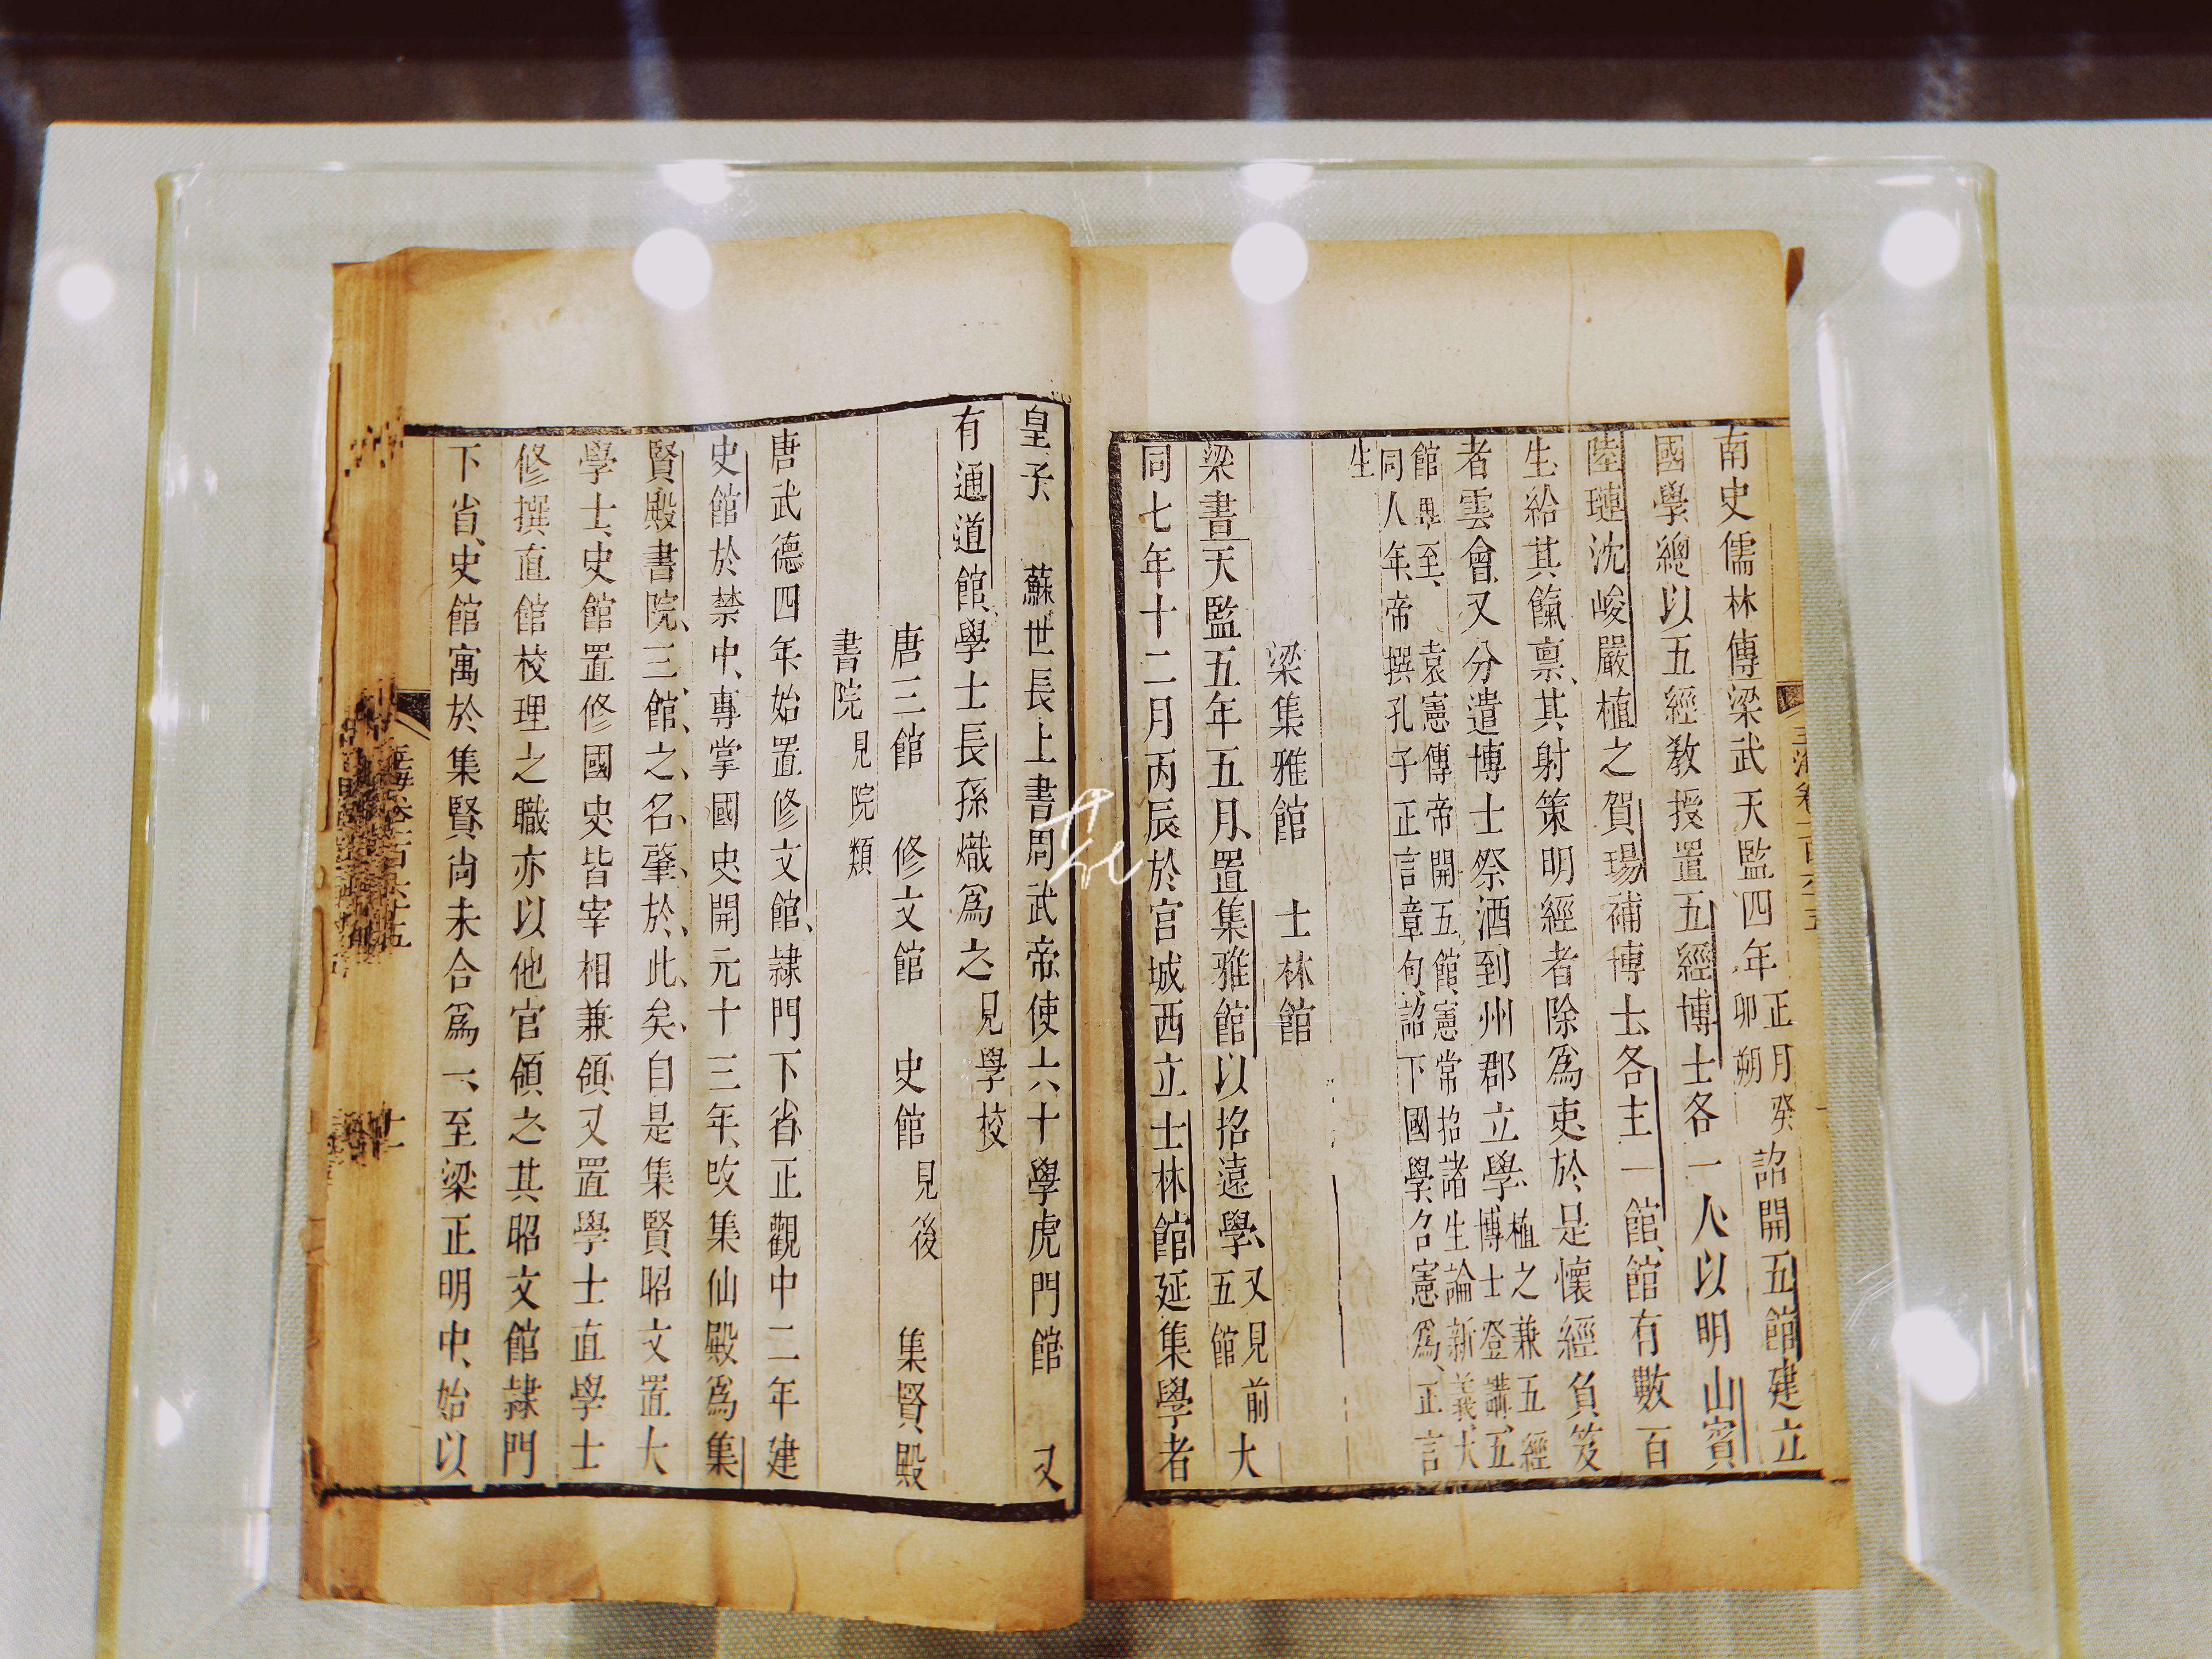 南史儒林傳梁武天監四年正月癸卯朔詔開五館建立
國學總以五經敎授置五經博士各一人以明山賓
陸璉沈峻嚴植之賀瑒補博士各主一館館有數百
生給其餼禀其射策明經者除爲吏於是懷經負笈
者雲會又分遣博士祭酒到州郡立學植之兼五經博士登講五
館畢至 袁憲傳帝開五館憲常招諸生論新義大
同八年帝撰孔子正言章句詔下國學召憲爲正言
生
梁集雅館 士林館
梁書天監五年五月置集雅館以招遠學又見前五館大
同七年十二月丙辰於宮城西立士林館延集學者
皇子 蘇世長上書周武帝使六十學虎門館 又
有通道館學士長孫熾爲之見學校
唐三館 修文館 史館見後 集賢殿
書院見院類
唐武德四年始置修文館隷門下省正觀中二年建
史館於禁中專掌國史開元十三年改集仙殿爲集
賢殿書院三館之名肇於此矣自是集賢昭文置大
學士史館置修國史皆宰相兼領又置學士直學士
修撰直館校理之職亦以他官領之其昭文館隷門
下省史館寓於集賢尚未合爲一至梁正明中始以
玉海卷一百六十五